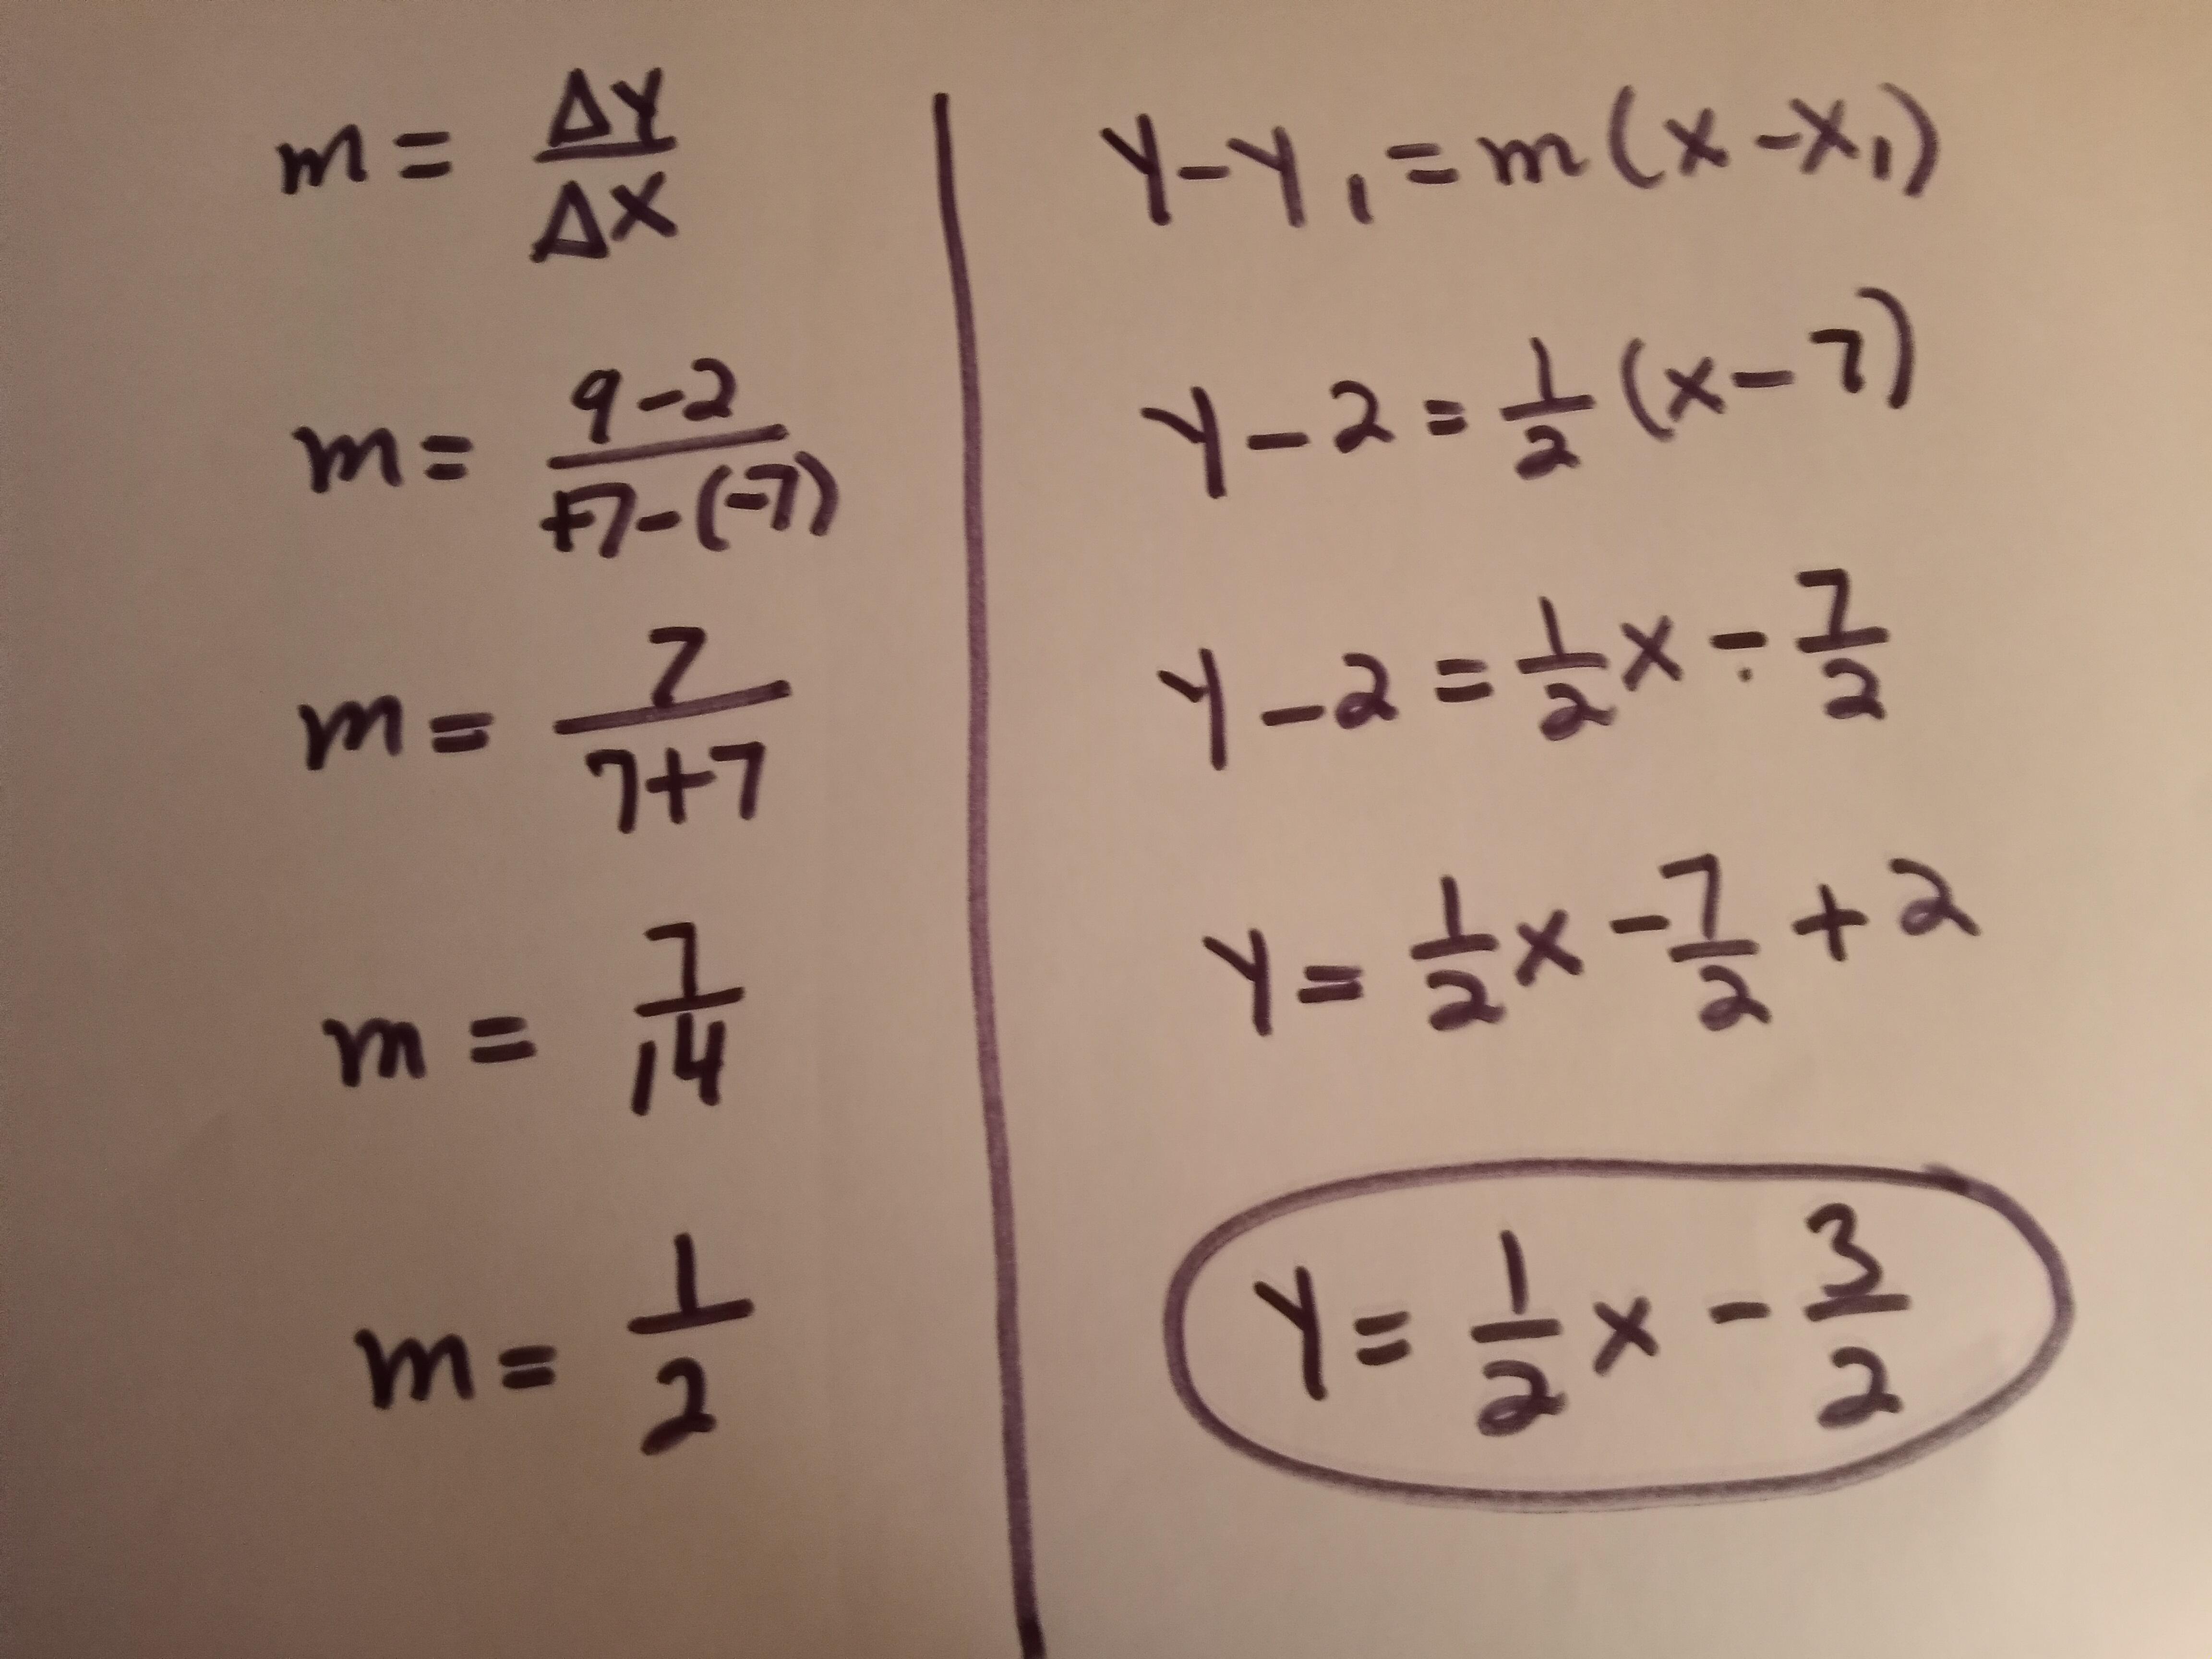 m = ΔY/ΔX
m = 9-2/+7-(-7)
m = 7/7+7
m = 7/14
m = 1/2
Y-Y₁ = m(x-x₁)
Y-2 = 1/2(x-7)
Y-2 = 1/2x - 7/2
Y = 1/2x - 7/2 + 2
Y = 1/2x - 3/2